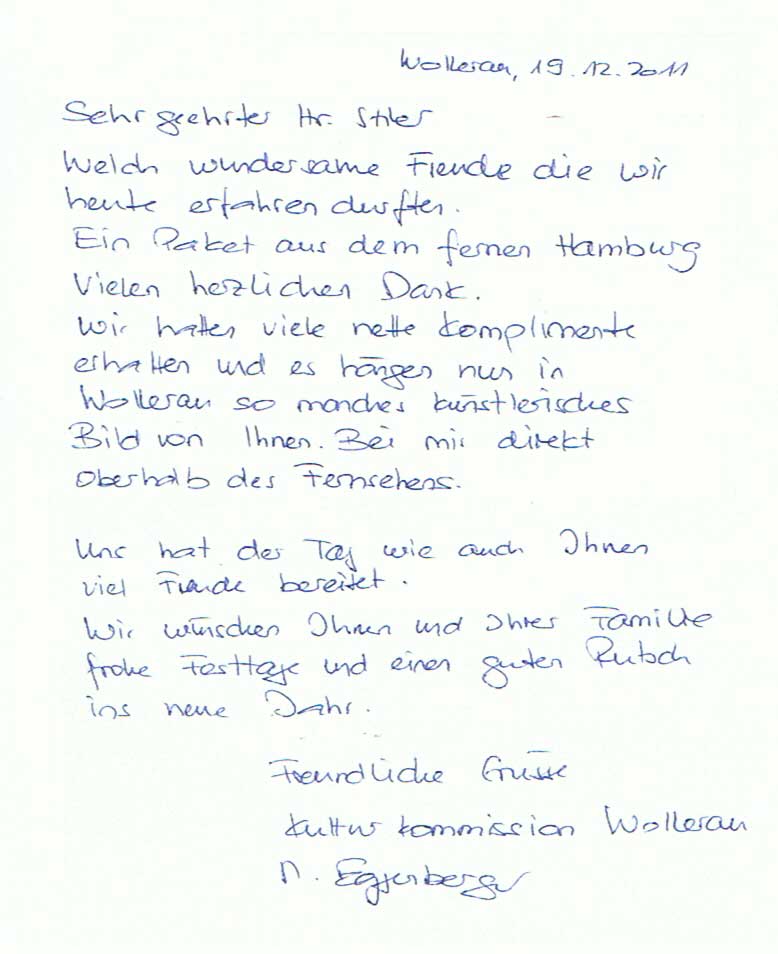 Wollerau, 19.12.2011
Sehr geehrter Hr. Stiler
Welch wundersame Freude die wir
heute erfahren durften.
Ein Paket aus dem fernen Hamburg
Vielen herzlichen Dank.
Wir hatten viele nette Komplimente
erhalten und es hängen nun in
Wollerau so manches künstlerisches
Bild von Ihnen. Bei mir direkt
oberhalb des Fernsehers.
Uns hat der Tag wie auch Ihnen
viel Freude bereitet.
Wir wünschen Ihnen und Ihrer Familie
frohe Festtage und einen guten Rutsch
ins neue Jahr.
Freundliche Grüsse
Kulturkommission Wollerau
Eggenberger